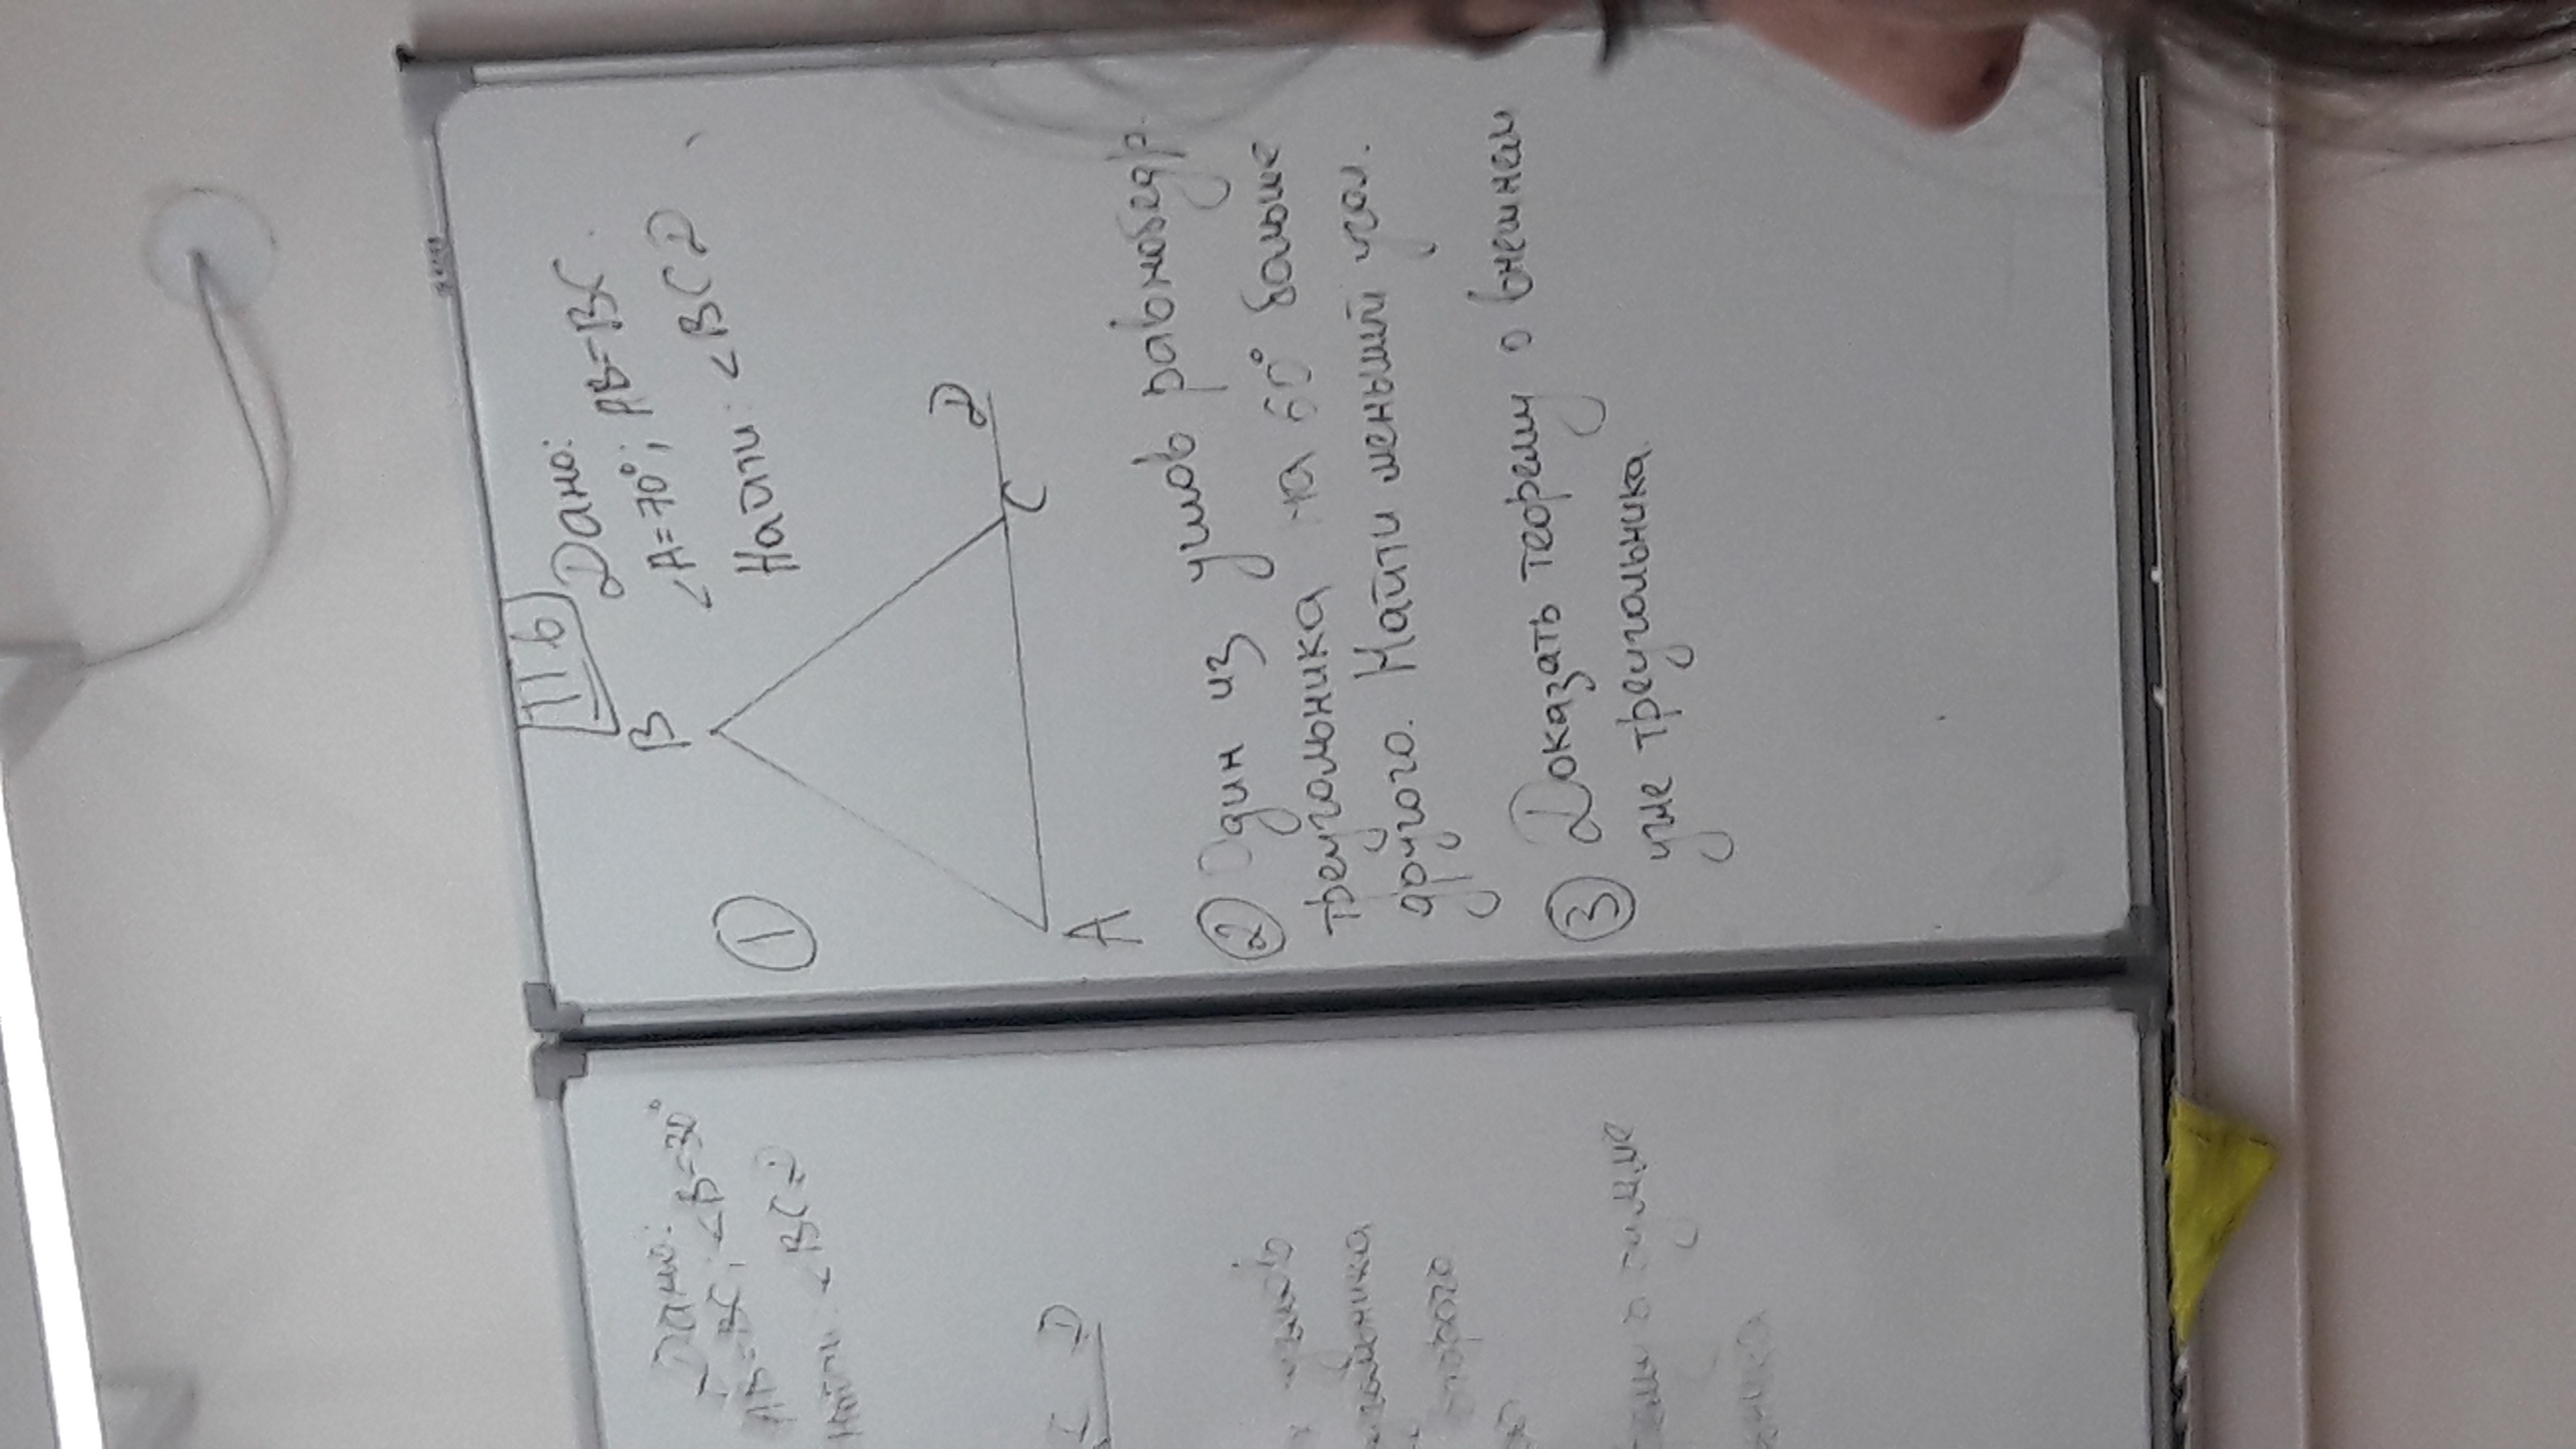 II в
Дано:
∠A=70°; AB=BC
Найти: ∠BCD
①
B
A
C
D
② Один из углов равнобедр.
треугольника на 60° больше
другого. Найти меньший угол.
③ Доказать теорему о внешнем
угле треугольника.
Дано:
AB=BC; ∠B=30°
Найти: ∠BCD
D